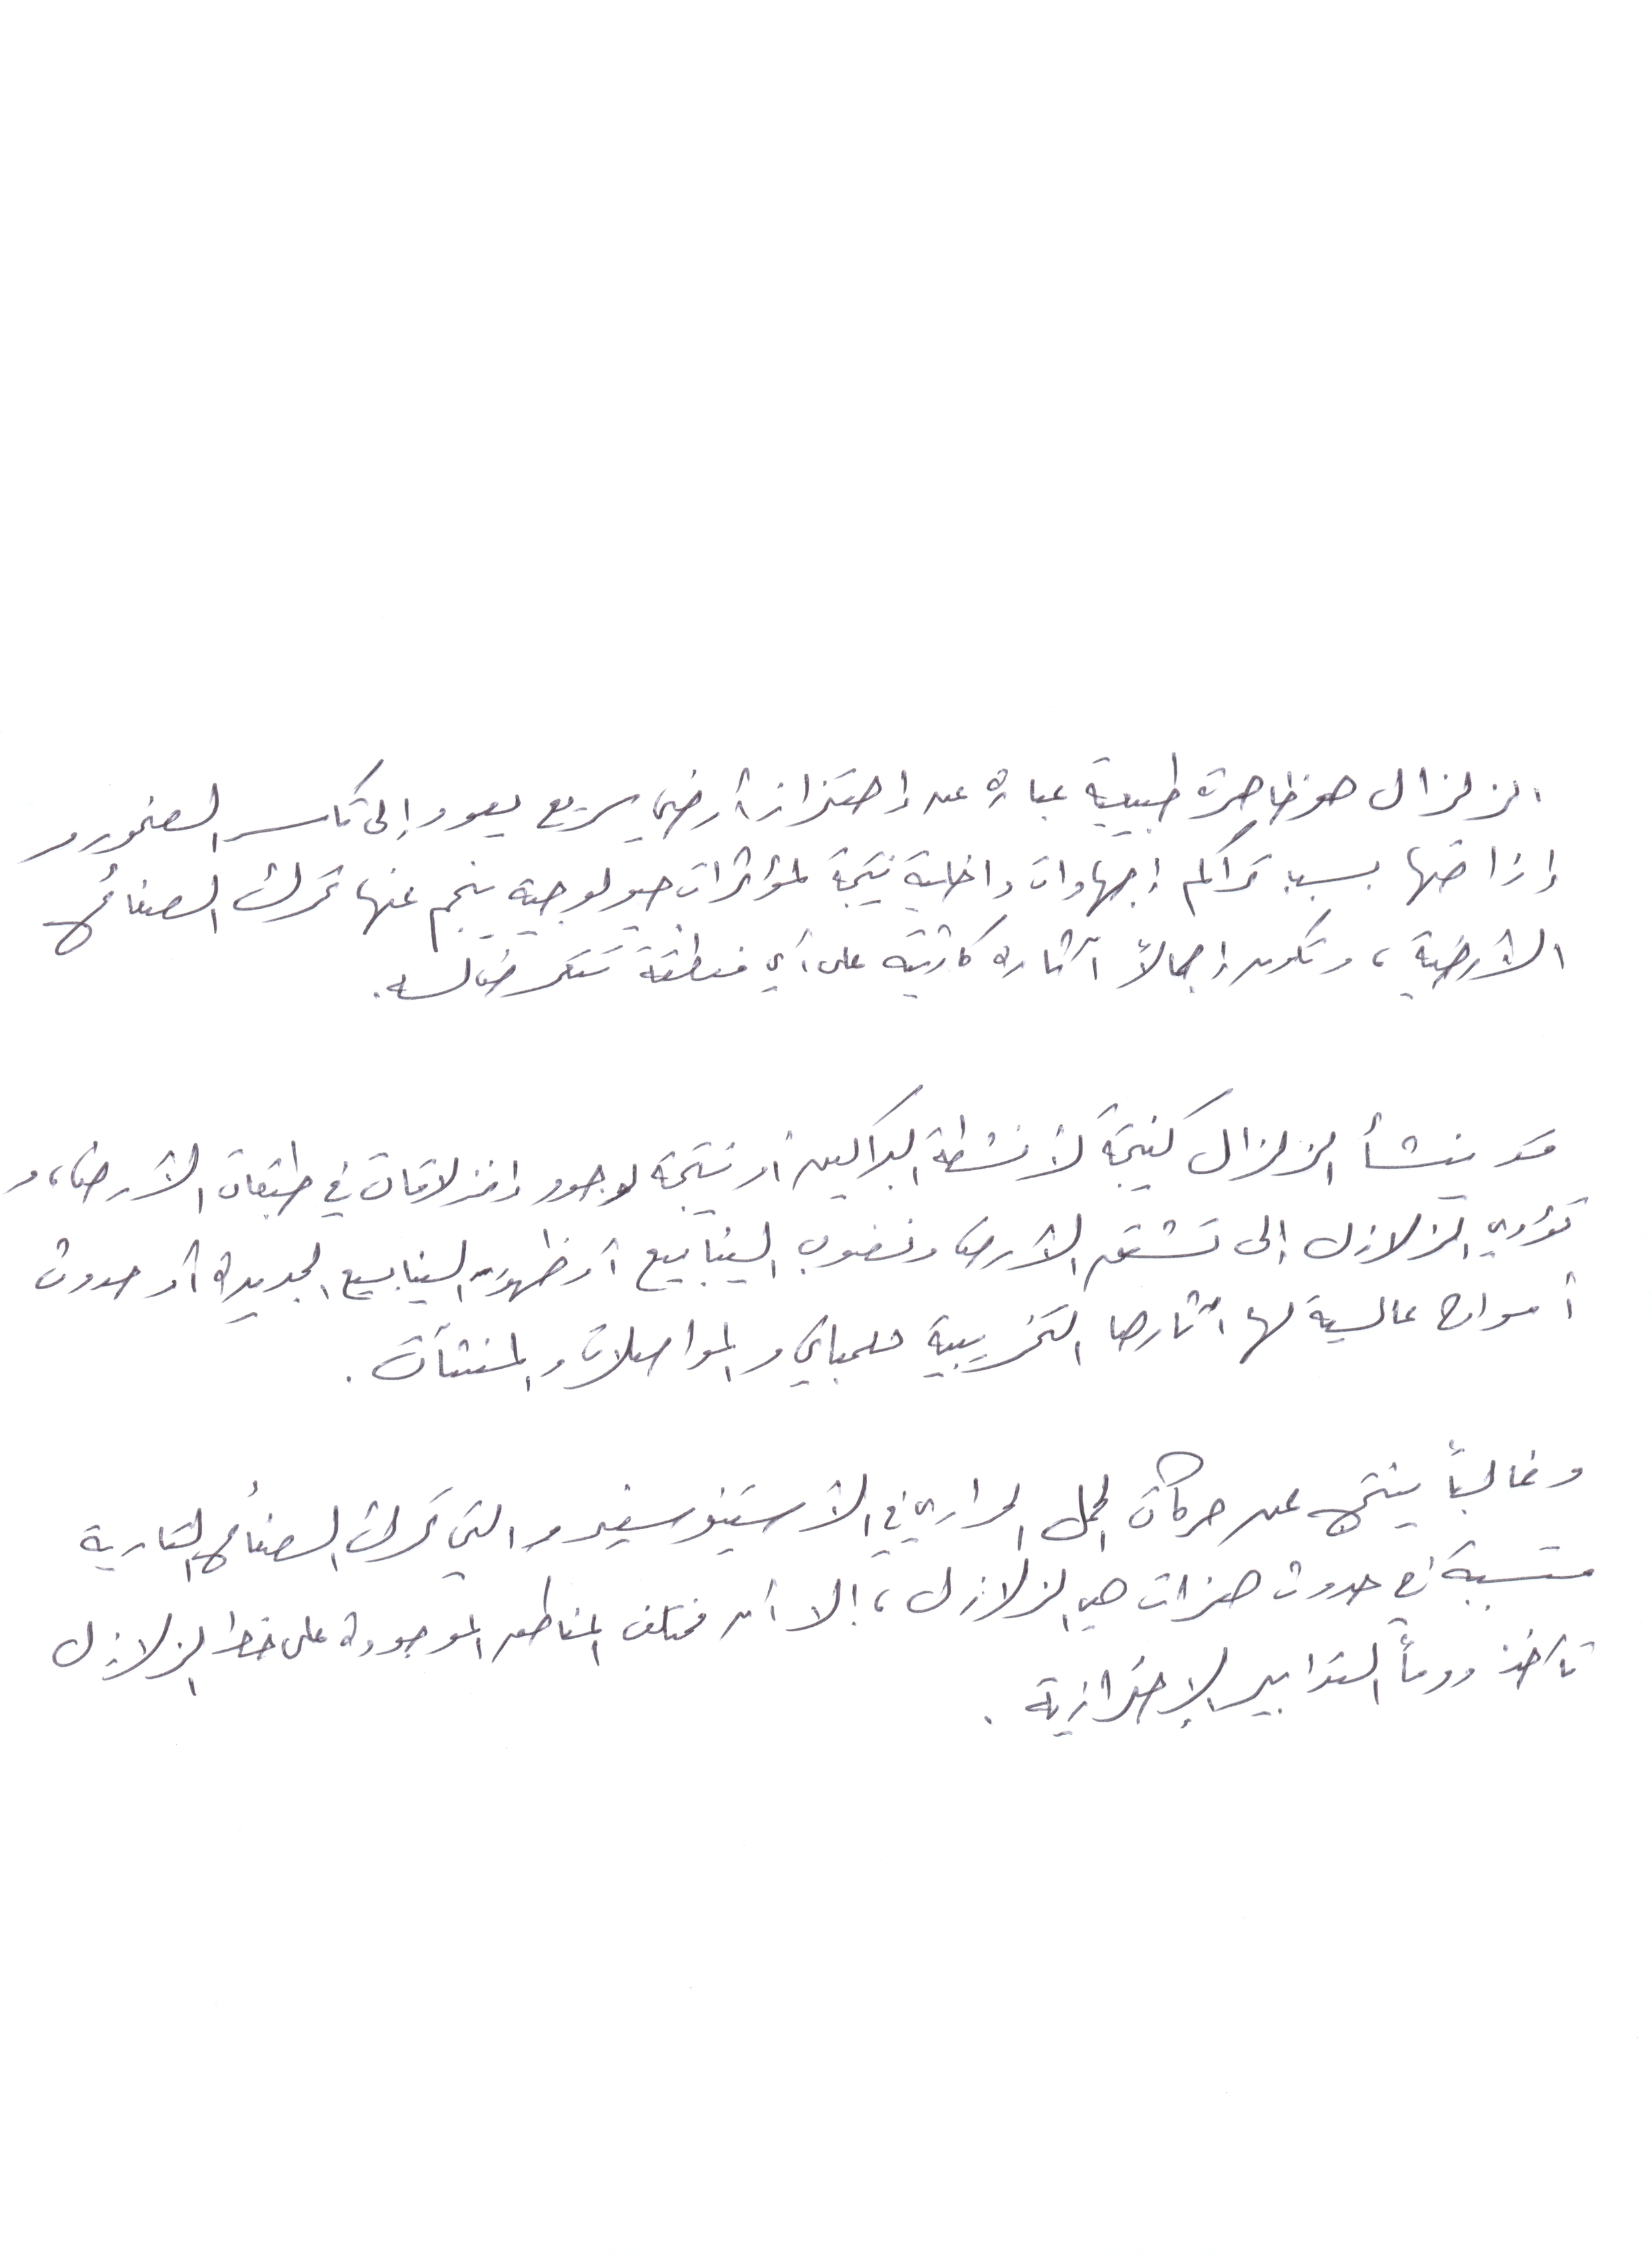 الزلزال هو ظاهرة طبيعية عبارة عن إهتزاز أرضي سريع يعود إلى تكسر الصخور و
إزاحتها بسبب تراكم إجهادات داخلية نتيجة لمؤثرات جيولوجية ينجم عنها تحرك الصفائح
الأرضية ، وتكون إجمالاً آثاره كارثية على أي منطقة تتعرض له .
قد ينشأ الزلزال كنتيجة لأنشطة البراكين أو نتيجة لوجود إنزلاقات في طبقات الأرض ، و
تؤدي الزلازل إلى تشقق الأرض ونضوب الينابيع أو ظهور الينابيع الجديدة أو حدوث
أمواج عالية لها آثارها التخريبية للمباني و المواصلات و المنشآت .
وغالباً ينتج عن حركات الحمل الحراري في الأستينوسفير والتي تحرك الصفائح القارية
متسببة في حدوث هزات هي الزلازل ، إلا أن مختلف المناطق الموجودة على خط الزلازل
تأخذ دوماً التدابير الإحترازية .